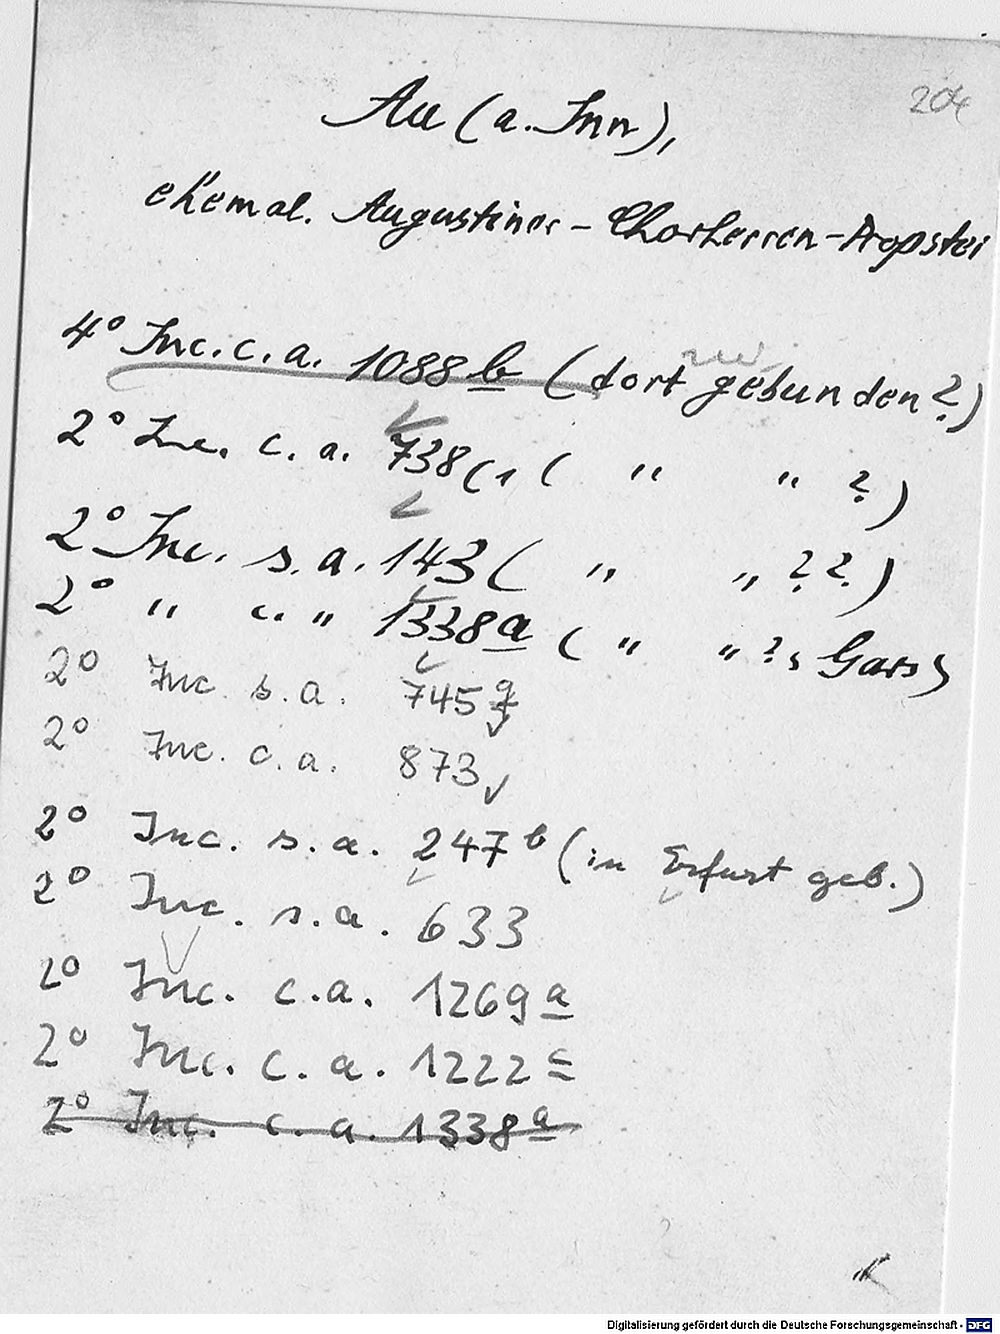 204
Au (a. Inn),
ehemal. Augustiner-Chorherren-Propstei
4° Inc. c. a. 1088 b (dort gebunden?)
2° Inc. c. a. 738 ( " " ?)
2° Inc. s. a. 143 ( " " ??)
2° " c. " 1338 a ( " " ?, Gars)
2° Inc. s. a. 745
2° Inc. c. a. 873
2° Inc. s. a. 247 b (in Erfurt geb.)
2° Inc. s. a. 633
2° Inc. c. a. 1269 a
2° Inc. c. a. 1222 c
2° Inc. c. a. 1338 a
Digitalisierung gefördert durch die Deutsche Forschungsgemeinschaft - DFG